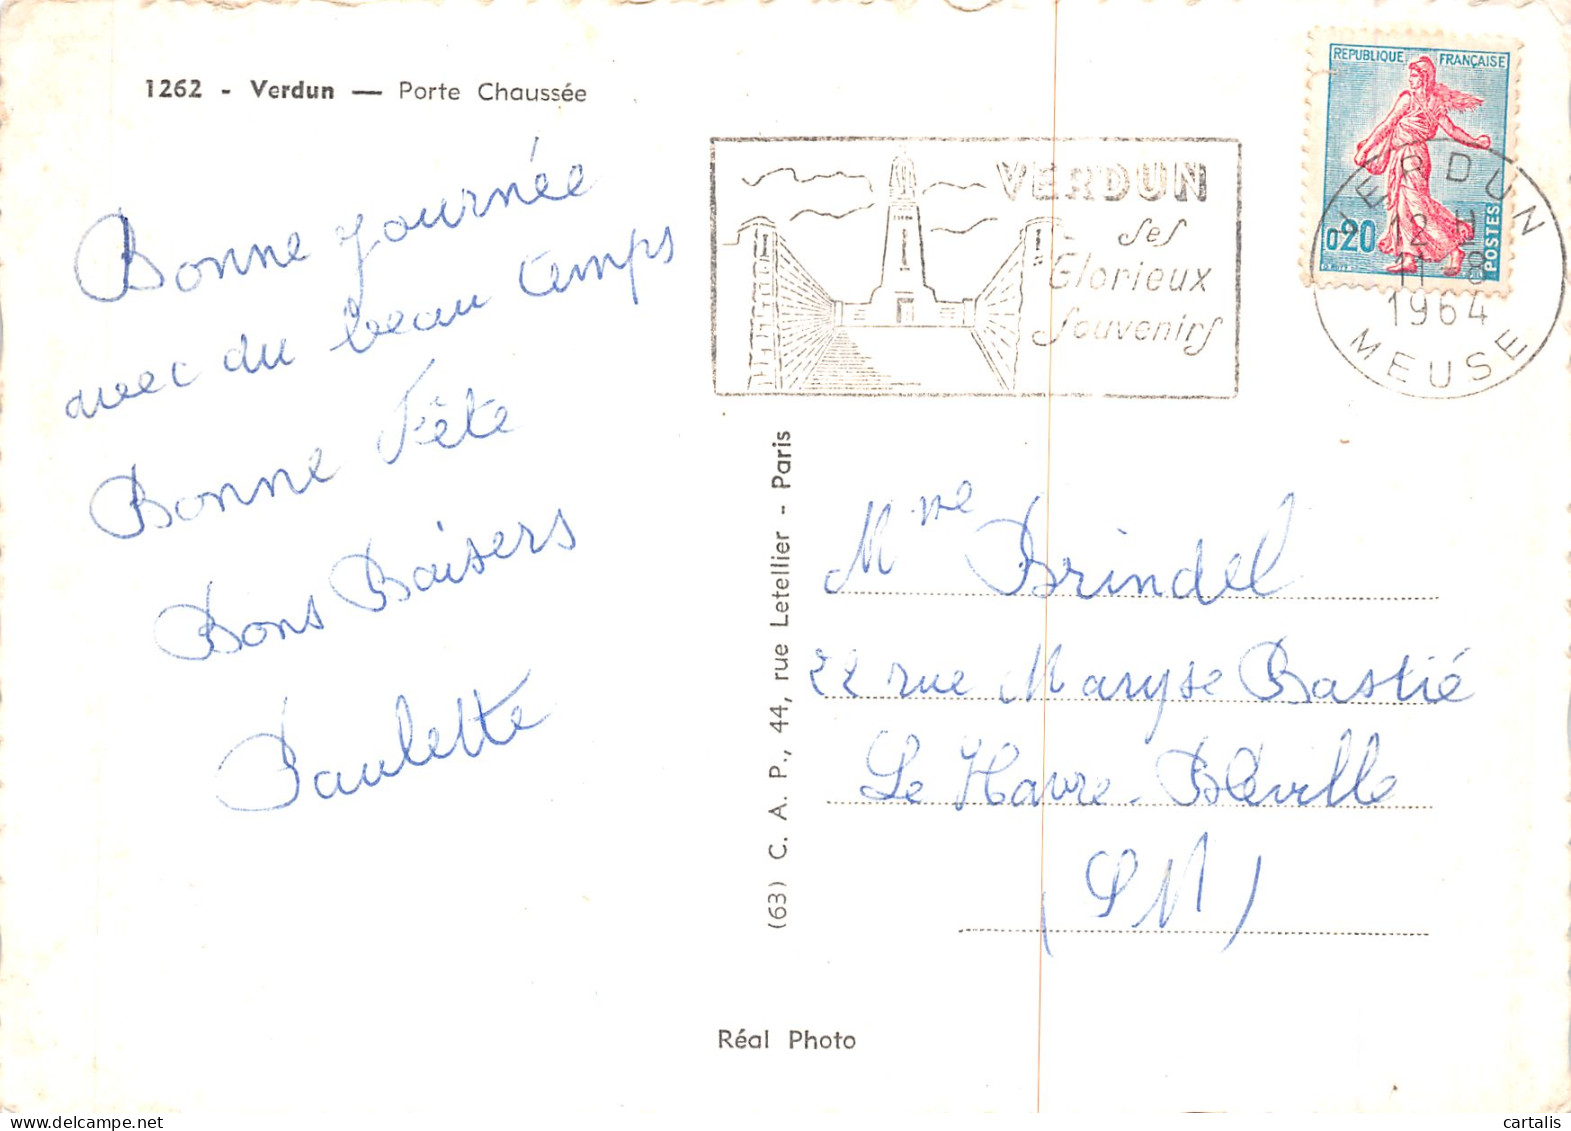 1262 - Verdun — Porte Chaussée
Bonne journée
avec du beau temps
Bonne Fête
Bons Baisers
Paulette
VERDUN
ses
Glorieux
Souvenirs
REPUBLIQUE FRANÇAISE
0,20
POSTES
VERDUN
12 H
11-8
1964
MEUSE
(63) C. A. P., 44, rue Letellier - Paris
Mme Brindel
22 rue Maryse Bastié
Le Havre-Bléville
(SM)
Réal Photo
cartalis